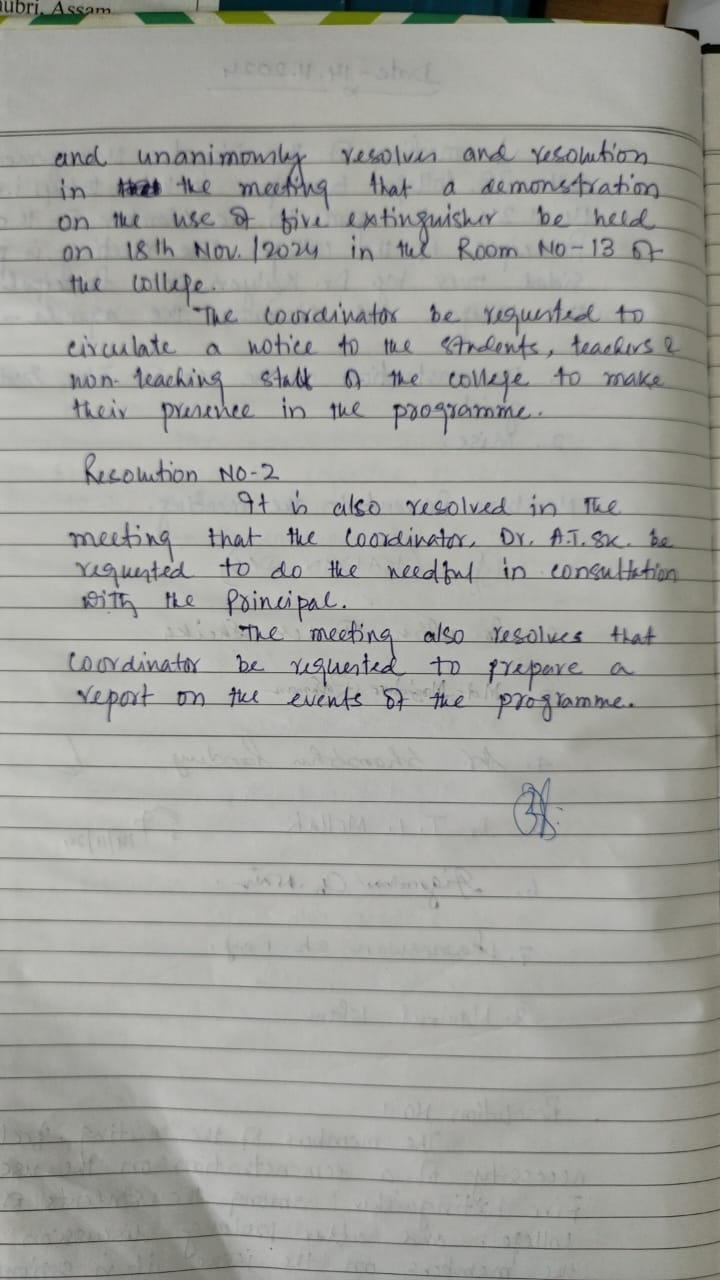 ubri, Assam
and unanimously resolves and resolution
in the meeting that a demonstration
on the use of fire extinguisher be held
on 18th Nov./2024 in the Room No-13 of
the college.
The Coordinator be requested to
circulate a notice to the students, teachers &
non-teaching staff of the college to make
their presence in the programme.
Resolution No-2
It is also resolved in the
meeting that the Coordinator, Dr. A.T. Sk. be
requested to do the needful in consultation
with the Principal.
The meeting also resolves that
Coordinator be requested to prepare a
report on the events of the programme.